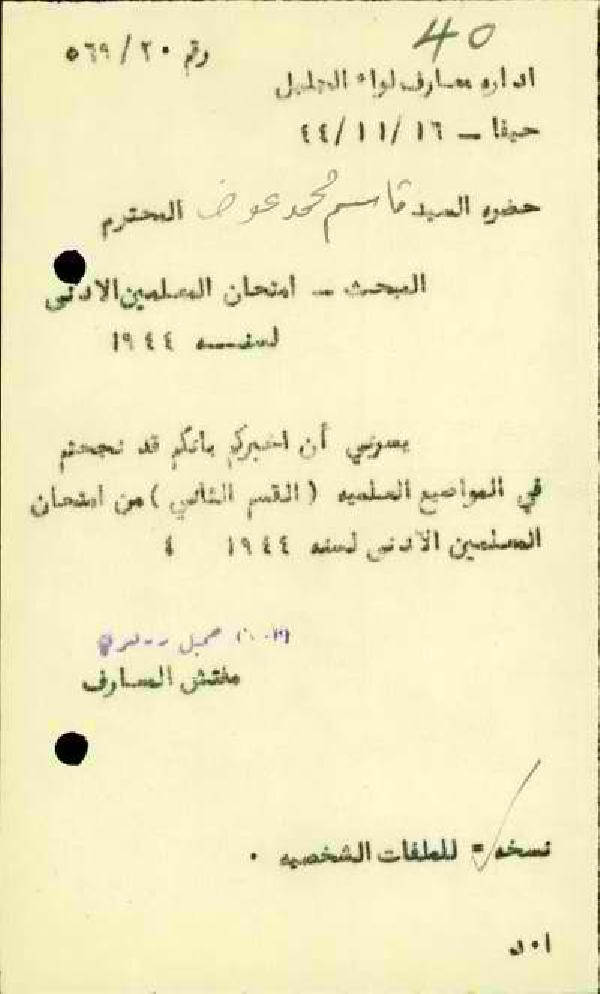 40
رقم ٢٠/ ٥٦٩
اداره معارف لواء الجليل
حيفا – ١٦ /١١/ ٤٤
حضره السيد قاسم محمد عوض المحترم
المبحث – امتحان المعلمين الادنى
لسنـــه ١٩٤٤
يسرني أن اخبركم بانكم قد نجحتم
في المواضيع العلميه ( القسم الثاني ) من امتحان
المعلمين الادنى لسنه ١٩٤٤
مفتش المعارف
نسخه = للملفات الشخصيه ٠